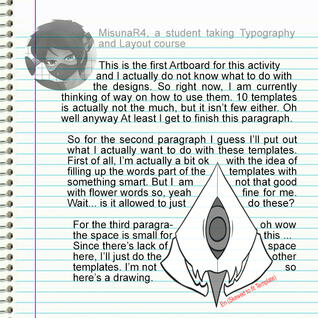 MisunaR4, a student taking Typography
and Layout course
This is the first Artboard for this activity
and I actually do not know what to do with
the designs. So right now, I am currently
thinking of way on how to use them. 10 templates
is actually not the much, but it isn't few either. Oh
well anyway At least I get to finish this paragraph.
So for the second paragraph I guess I'll put out
what I actually want to do with these templates.
First of all, I'm actually a bit ok with the idea of
filling up the words part of the templates with
something smart. But I am not that good
with flower words so, yeah fine for me.
Wait... is it allowed to just do these?
For the third paragra- oh wow
the space is small for this ...
Since there's lack of space
here, I'll just do the other
templates. I'm not so
here's a drawing.